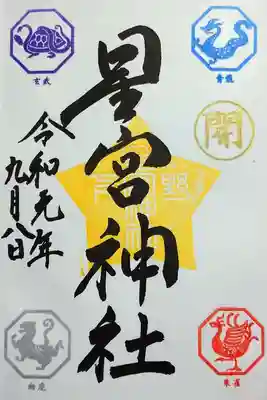 星宮神社
令和元年
九月八日
玄武
青龍
開
朱雀